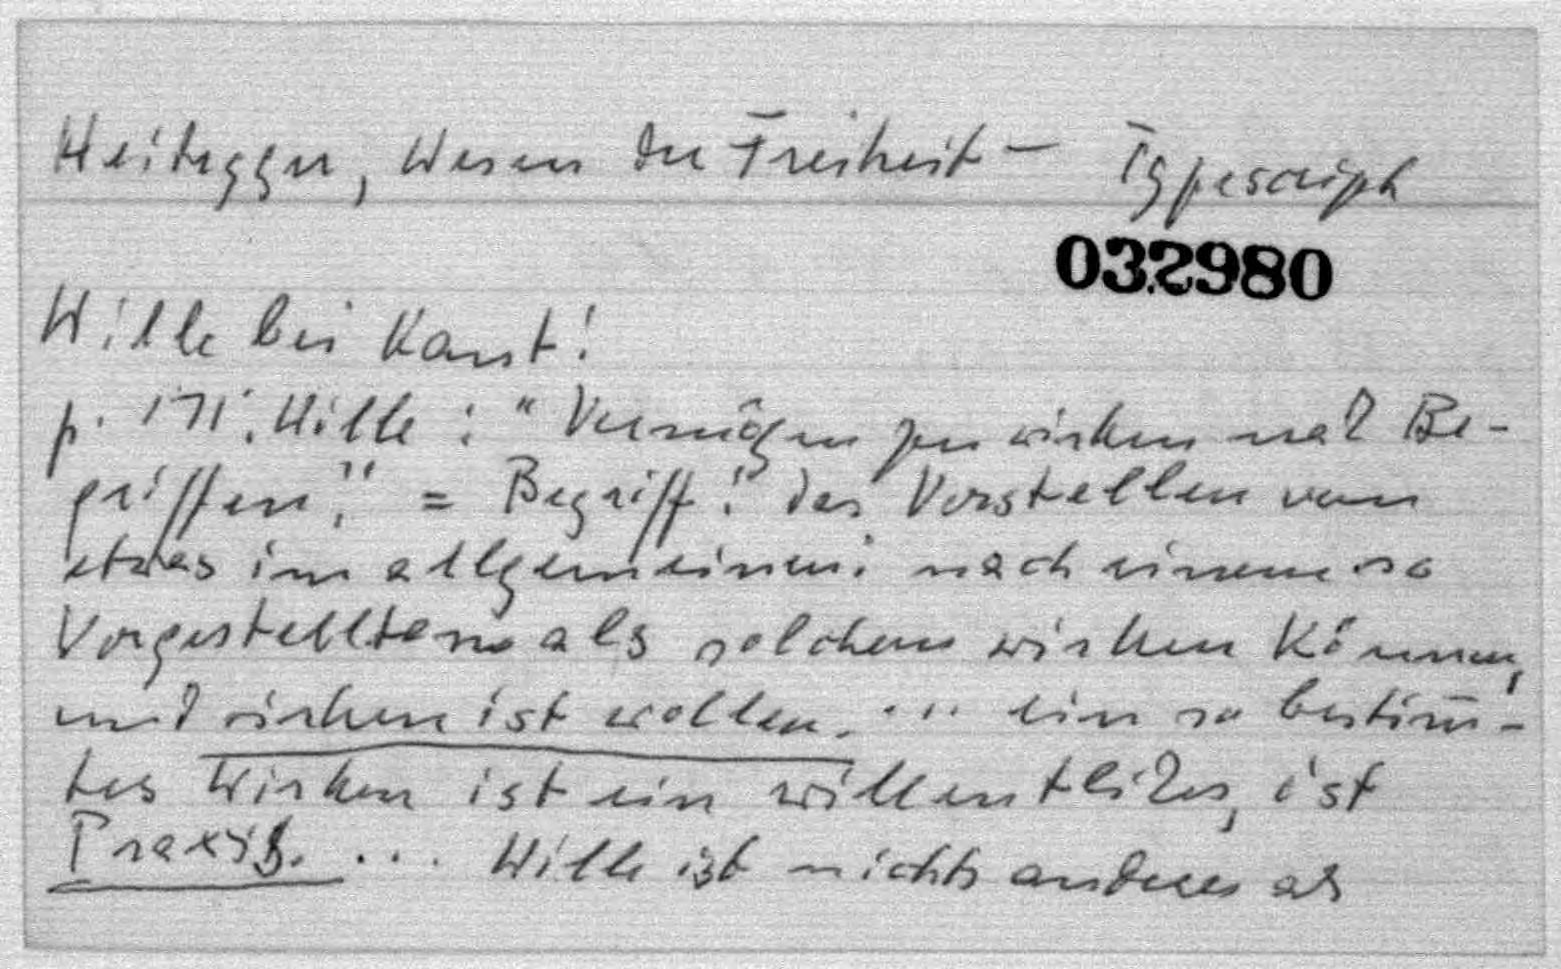 Heidegger, Wesen der Freiheit – Typescript
032980
Wille bei Kant!
p. 171. Wille: "Vermögen zu wirken nach Be-
griffen", = Begriff: das Vorstellen von
etwas im allgemeinen: nach einem so
Vorgestellten als solchem wirken können,
und wirken ist wollen. ... ein so bestimm-
tes Wirken ist ein willentliches, ist
Praxis. ... Wille ist nichts anderes als